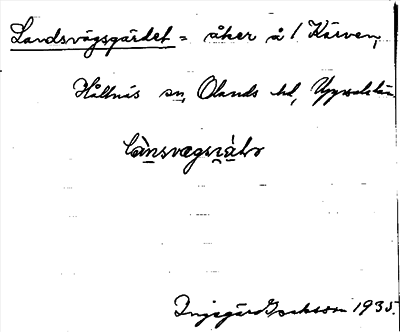 Landsvägsgärdet = åker å 1 Kärven,
Hållnäs sn, Olands hd, Uppsala län
Ingegärd Isaksson 1935.